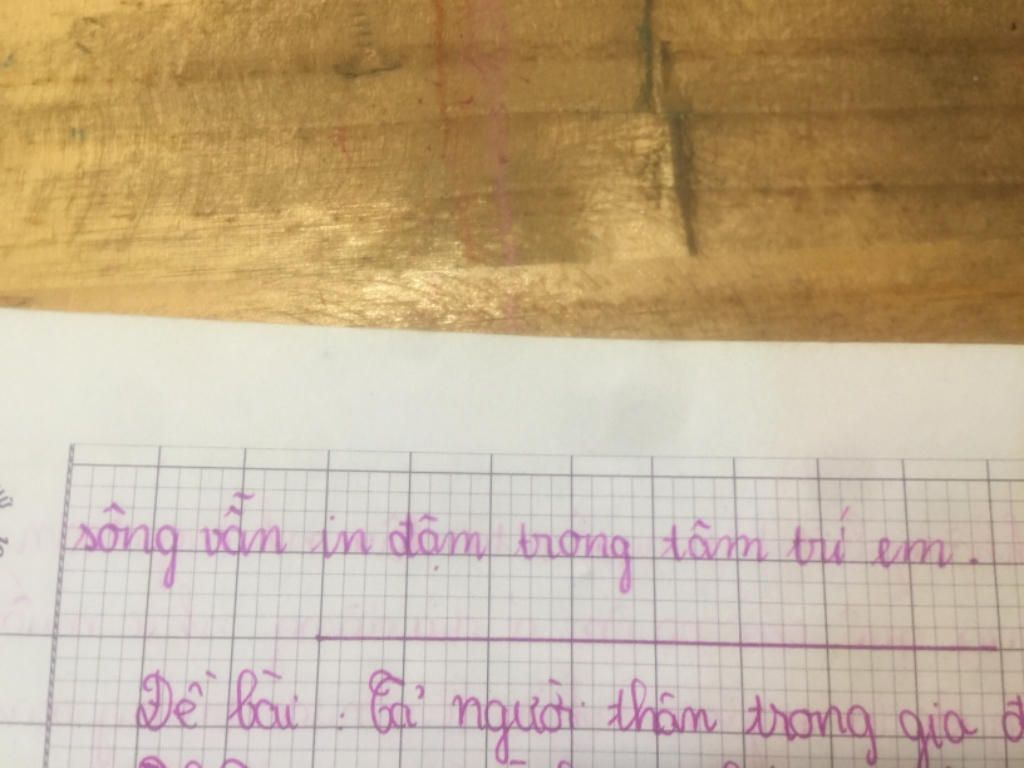 sông vẫn in đậm trong tâm trí em.
Đề bài. Tả người thân trong gia đ